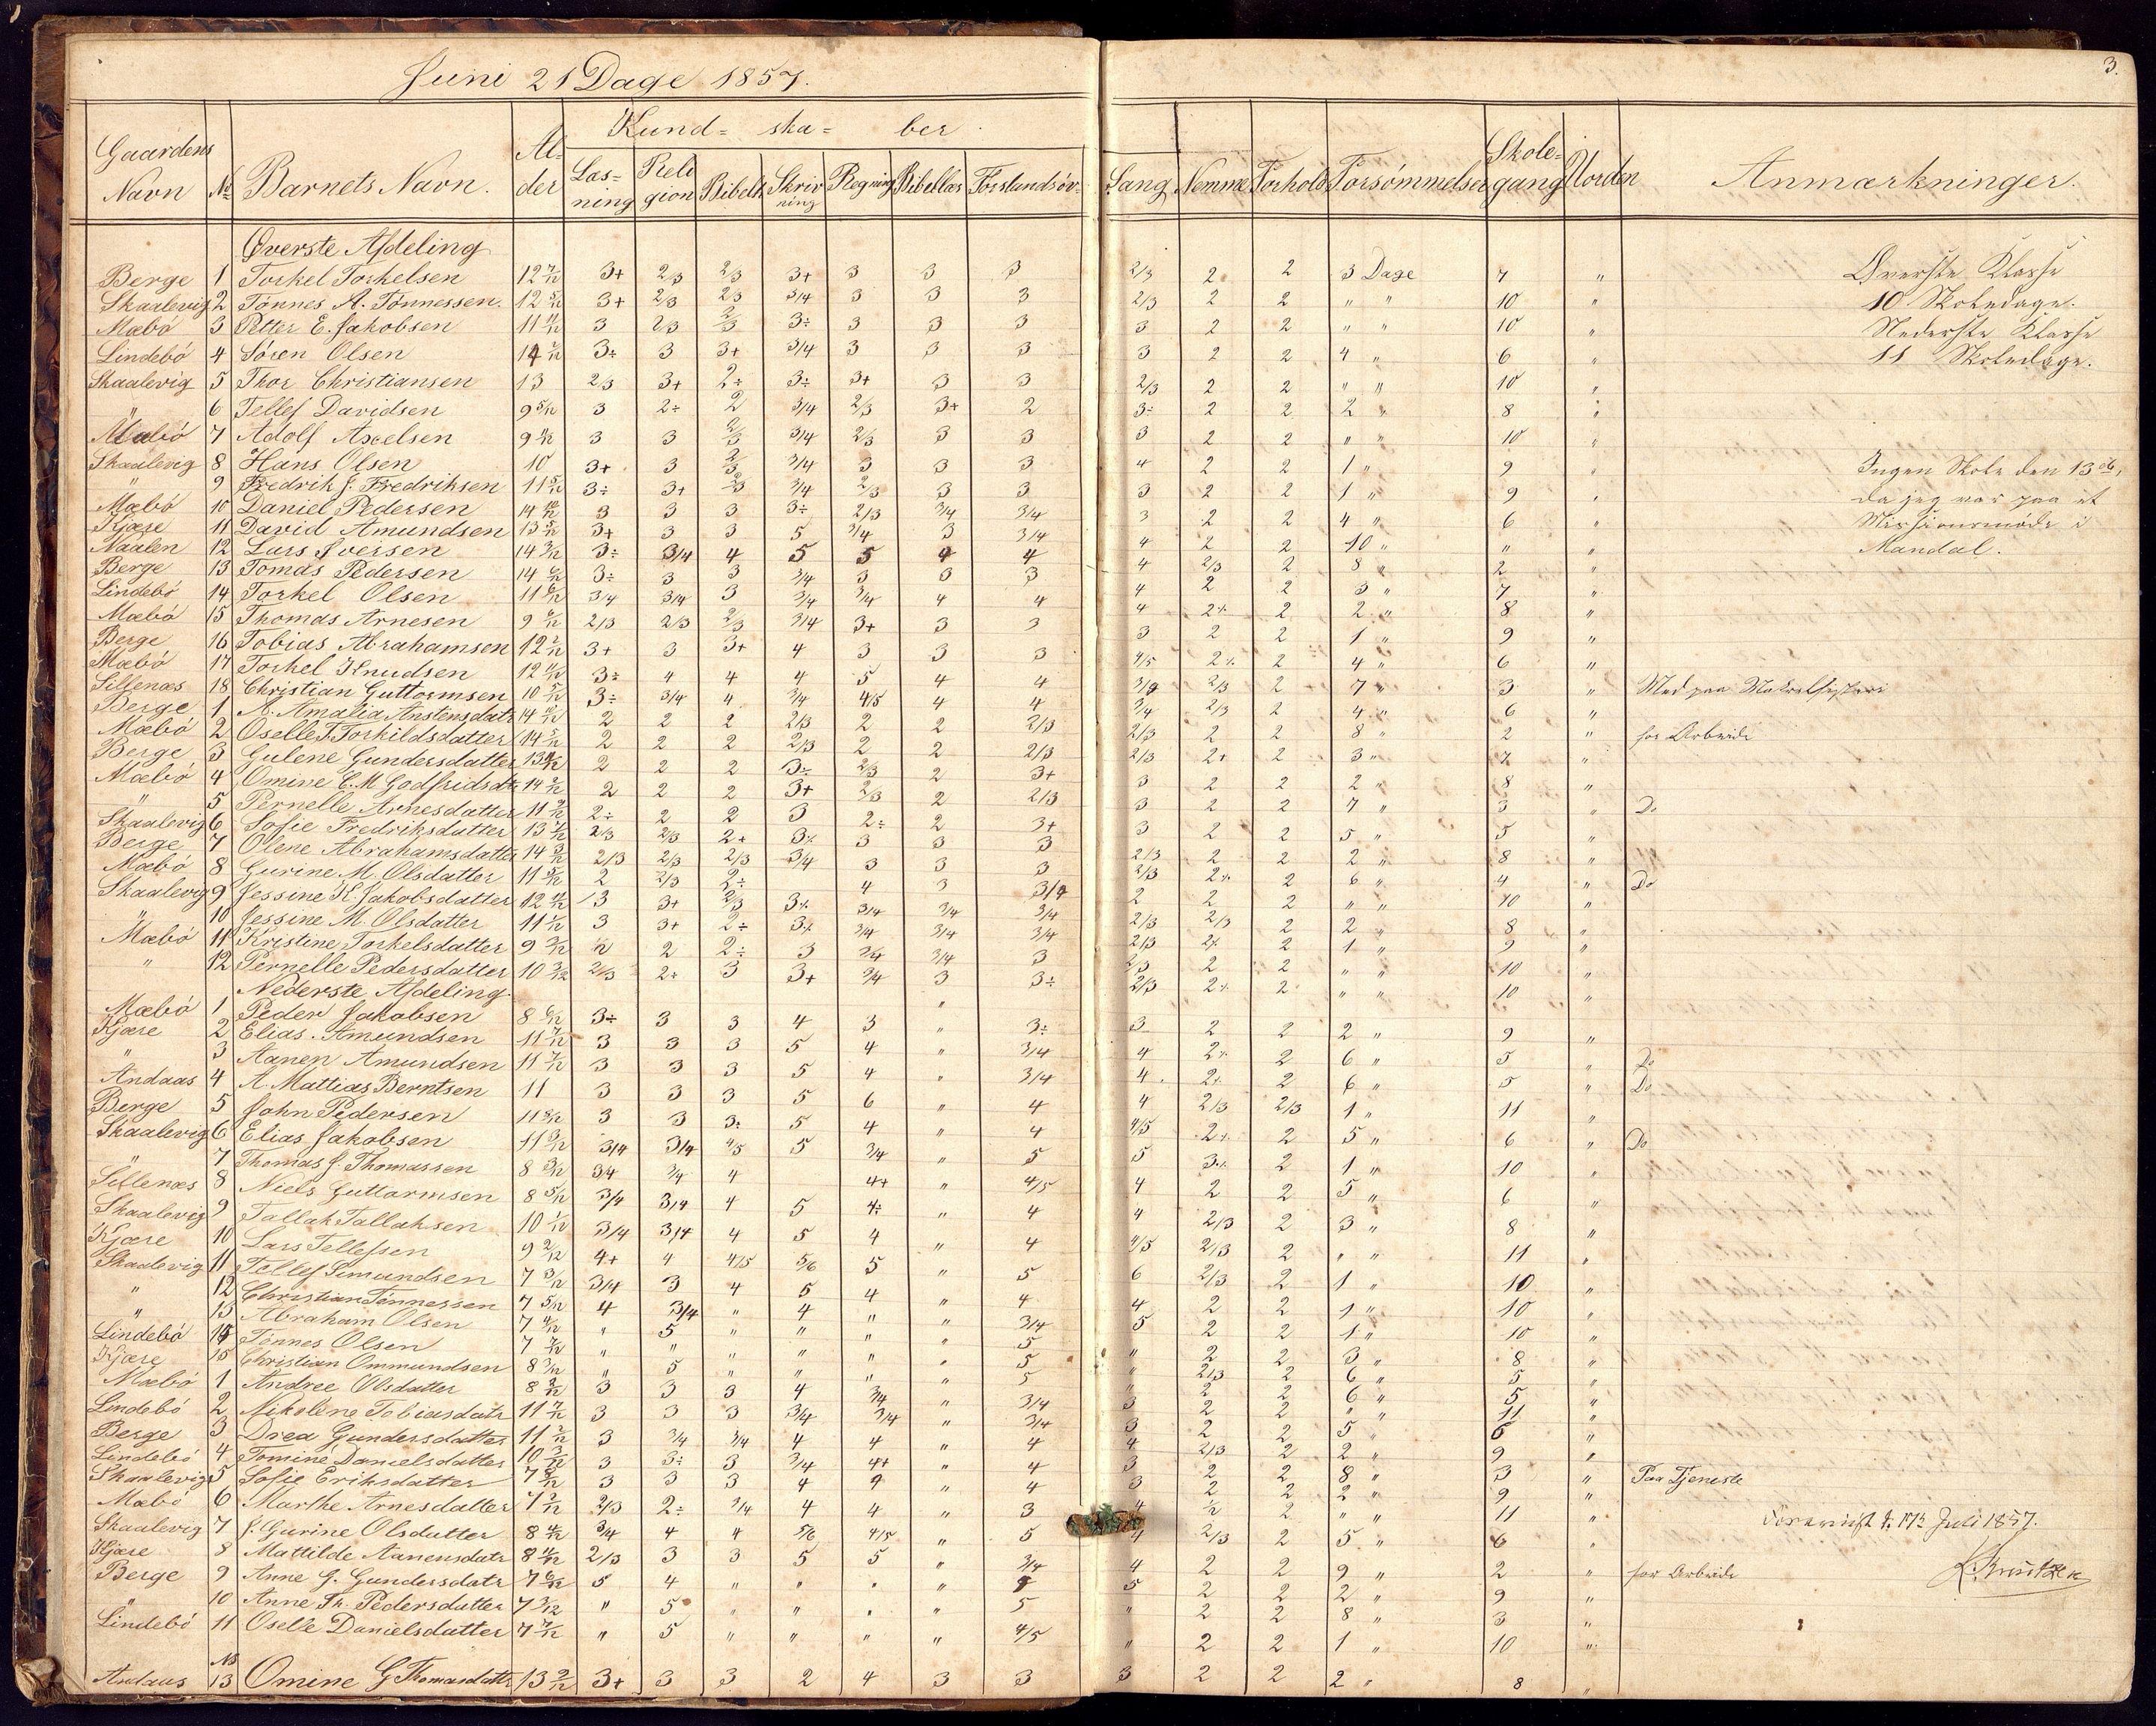 Juni 21 Dage 1857.
3.
Gaardens Navn № Barnets Navn. Al-der Kund- ska- ber. Læs-ning Reli gion Bibelh Skriv ning Regning Bibellæs Forstandsöv- Sang Nemme Forhold Forsømmelser Skole-gang Uorden Anmærkninger.
Øverste Afdeling
Berge 1 Torkel Torkelsen 12 7/12 3+ 2/3 2/3 3+ 3 3 3 2/3 2 2 3 Dage 7 " Øverste Klasse
Skaalevig 2 Tönnes A. Tönnessen. 12 5/12 3+ 2/3 2/3 3/4 3 3 3 2/3 2 2 " " 10 " 10 Skoledage.
Mæbö 3 Petter E. Jakobsen 11 11/12 3 2/3 2/3 3÷ 3 3 3 3 2 2 " " 10 " Nederste Klasse
Lindebö 4 Sören Olsen 3÷ 3 3+ 3/4 3 3 3 3 2 2 4 " 6 " 11 Skoledage.
Skaalevig 5 Thor Christiansen 13 2/3 3+ 2÷ 3÷ 3+ 3 3 2/3 2 2 " " 10 "
" 6 Tellef Davidsen 9 5/12 3 2÷ 2 3/4 2/3 3+ 2 3÷ 2 2 2 " 8 "
Mæbö 7 Adolf Axelsen 3 3 2/3 3/4 2/3 3 3 3 2 2 " " 10 "
Skaalevig 8 Hans Olsen 10 3+ 3 2/3 3/4 3 3 3 4 2 2 1 " 9 " Ingen Skole den 13de,
" 9 Fredrik J. Fredriksen 11 5/12 3÷ 3+ 2/3 3/4 2/3 3 3 3 2 2 1 " 9 " da jeg var paa et
Mæbö 10 Daniel Pedersen 14 10/12 3 3 3 3÷ 2/3 3/4 3/4 3 2 2 4 " 6 " Missionsmöde i
Kjære 11 David Amundsen 13 5/12 3+ 3 3 5 3/4 3 3/4 4 2 2 10 " " " Mandal.
Naalen 12 Lars Iversen 14 3/12 3÷ 3/4 4 5 5 4 4 4 2/3 2 8 " 2 "
Berge 13 Tomas Pedersen 14 6/12 3÷ 3 3 3/4 3 3 3 4 2 2 3 " 7 "
Lindebö 14 Torkel Olsen 11 6/12 3/4 3/4 3 3/4 3/4 4 4 4 2÷ 2 2 " 8 "
Mæbö 15 Thomas Arnesen 2/3 2/3 2/3 3/4 3+ 3 3 3 2 2 1 " 9 "
Berge 16 Tobias Abrahamsen 3+ 3 3+ 4 3 3 3 4/5 2÷ 2 4 " 6 "
Mæbö 17 Torkel Knudsen 12 11/12 3÷ 4 4 4 5 4 4 3/4 2/3 2 7 " 3 " Med paa Makrelfiskeri
Sillenæs 18 Christian Guttormsen 10 5/12 3÷ 3/4 4 3/4 4/5 4 4 3/4 2/3 2 4 " 6 "
Berge 1 A. Amalia Anstensdatr 14 10/12 2 2 2 2/3 2 2 2/3 2/3 2 2 8 " 2 " for Arbeide
Mæbö 2 Oselle T. Torkildsdatter 14 5/12 2 2 2 2/3 2 2 2/3 2/3 2+ 2 3 " 7 "
Berge 3 Gulene Gundersdatter 2 2 2 3÷ 2/3 2 3+ 3 2 2 2 " 8 "
Mæbö 4 Omine C. M Godfridsdtr 14 2/12 2 2 2 3+ 2/3 2 2/3 3 2 2 7 " 3 " Do
" 5 Pernelle Arnesdatter 11 9/12 2÷ 2 2 3 2÷ 2 3+ 3 2 2 5 " 5 "
Skaalevig 6 Sofie Fredriksdatter 13 7/12 2/3 2/3 2+ 3÷ 3 3 3 2/3 2 2 2 " 8 "
Berge 7 Olene Abrahamsdatter 14 3/12 2/3 2/3 2/3 3/4 3 3 3 2/3 2÷ 2 6 " 4 " Do
Mæbö 8 Gurine M. Olsdatter 11 5/12 2 2/3 2÷ 4 3 3/4 2 2 2 " " 10 "
Skaalevig 9 Jessine K Jakobsdatter 12 11/12 3 3+ 2/3 3÷ 3/4 3/4 3/4 2/3 2/3 2 2 " 8 "
" 10 Jessine M. Olsdatter 11 1/12 3 3+ 2÷ 3÷ 3/4 3/4 3/4 2/3 2÷ 2 1 " 9 "
Mæbö 11 Kristine Torkelsdatter 9 2 2÷ 3 3/4 3/4 3 2/3 2 2 " " 10 "
" 12 Pernelle Pedersdatter 10 3/12 2/3 2÷ 3 3+ 3/4 3 3÷ 2/3 2÷ 2 " " 10 "
Nederste Afdeling.
Mæbö 1 Peder Jakobsen 8 6/12 3÷ 3 3 4 3 " 3÷ 3 2 2 2 " 9 "
Kjære 2 Elias Amundsen 11 7/12 3 3 3 5 4 " 3/4 4 2÷ 2 6 " 5 " Do
" 3 Aanen Amundsen 11 7/12 3 3 3 5 4 " 3/4 4 2÷ 2 6 " 5 " Do
Andaas 4 A. Mattias Berntsen 11 3 3 3 5 6 " 4 4 2/3 2/3 1 " 11 "
Berge 5 John Pedersen 11 8/12 3 3 3÷ 5 4 " 4 4/5 2÷ 2 5 " 6 " Do
Skaalevig 6 Elias Jakobsen 11 3/12 3/4 3/4 4/5 5 3/4 " 5 5 3÷ 2 1 " 10 "
" 7 Thomas J. Thomassen 8 3/12 3/4 3/4 4 4+ " 4/5 4 2 2 5 " 6 "
Sillenæs 8 Niels Guttormsen 8 5/12 3/4 3/4 4 5 4÷ " 4 4 2/3 2 3 " 8 "
Skaalevig 9 Tallak Tallaksen 10 1/12 3/4 3/4 4 5 4 " 4 4/5 2/3 2 " " 11 "
Kjære 10 Lars Tellefsen 9 2/12 4+ 4 4/5 5/6 5 " 5 6 2/3 2 1 " 10 "
Skaalevig 11 Tellef Simundsen 7 3/12 3/4 3 4 5 4 " 4 4 2 2 1 " 10 "
" 12 Christian Tönnessen 7 5/12 4 3/4 " 4 " " 3/4 5 2 2 1 " 10 "
" 13 Abraham Olsen " 5 " " " 5 " 2 2 3 " 8 "
Lindebö 14 Tönnes Olsen 7 7/12 " " " " " 5 " 2/3 2 6 " 5 "
Kjære 15 Christian Ommundsen 8 3/12 " 5 " " " 5 " 2 2 6 " 5 "
Mæbö 1 Andree Olsdatter 3 3 3 4 3/4 " 3/4 3 2 2 " " 11 "
Lindebö 2 Nikolene Tobiasdatr 11 7/12 3 3 3 3/4 3/4 " 3/4 3 2 2 5 " 6 "
Berge 3 Drea Gundersdatter 3 3/4 3/4 4 4 " 4 4 2/3 2 2 " 9 "
Lindebö 4 Tomine Danielsdatter 3 3÷ 3 3/4 4+ " 4 3 2 2 8 " 3 " Paa Tjeneste
Skaalevig 5 Sofie Eriksdatter 3 3 3 4 4 " 4 3 2 2 2 " 9 "
Mæbö 6 Marthe Arnesdatter 2/3 2÷ 3/4 4 4 " 3 4 1/2 2 " " 11 "
Skaalevig 7 J. Gurine Olsdatter 8 4/12 3/4 4 4 5/6 4/5 " 5 4 2/3 2 5 " 6 " 17 Juli 1857.
Kjære 8 Mattilde Aanensdatr 8 11/12 2/3 3 3 5 5 " 3/4 4 2 2 9 " 2 " for Arbeide
Berge 9 Anne G. Gundersdatr 7 6/12 5 4 " " " " 5 2 2 2 " 9 "
" 10 Anne Th. Pedersdatter 7 3/12 " 5 " " " " 5 " 2 2 8 " 3 "
Lindebö 11 Oselle Danielsdatter 7 7/12 " 5 " " " " 4/5 " 2 2 1 " 10 "
Andaas № 13 Omine G Thomasdattr 13 2/12 3+ 3 3 2 4 3 3 3 2 2 2 " 8 "